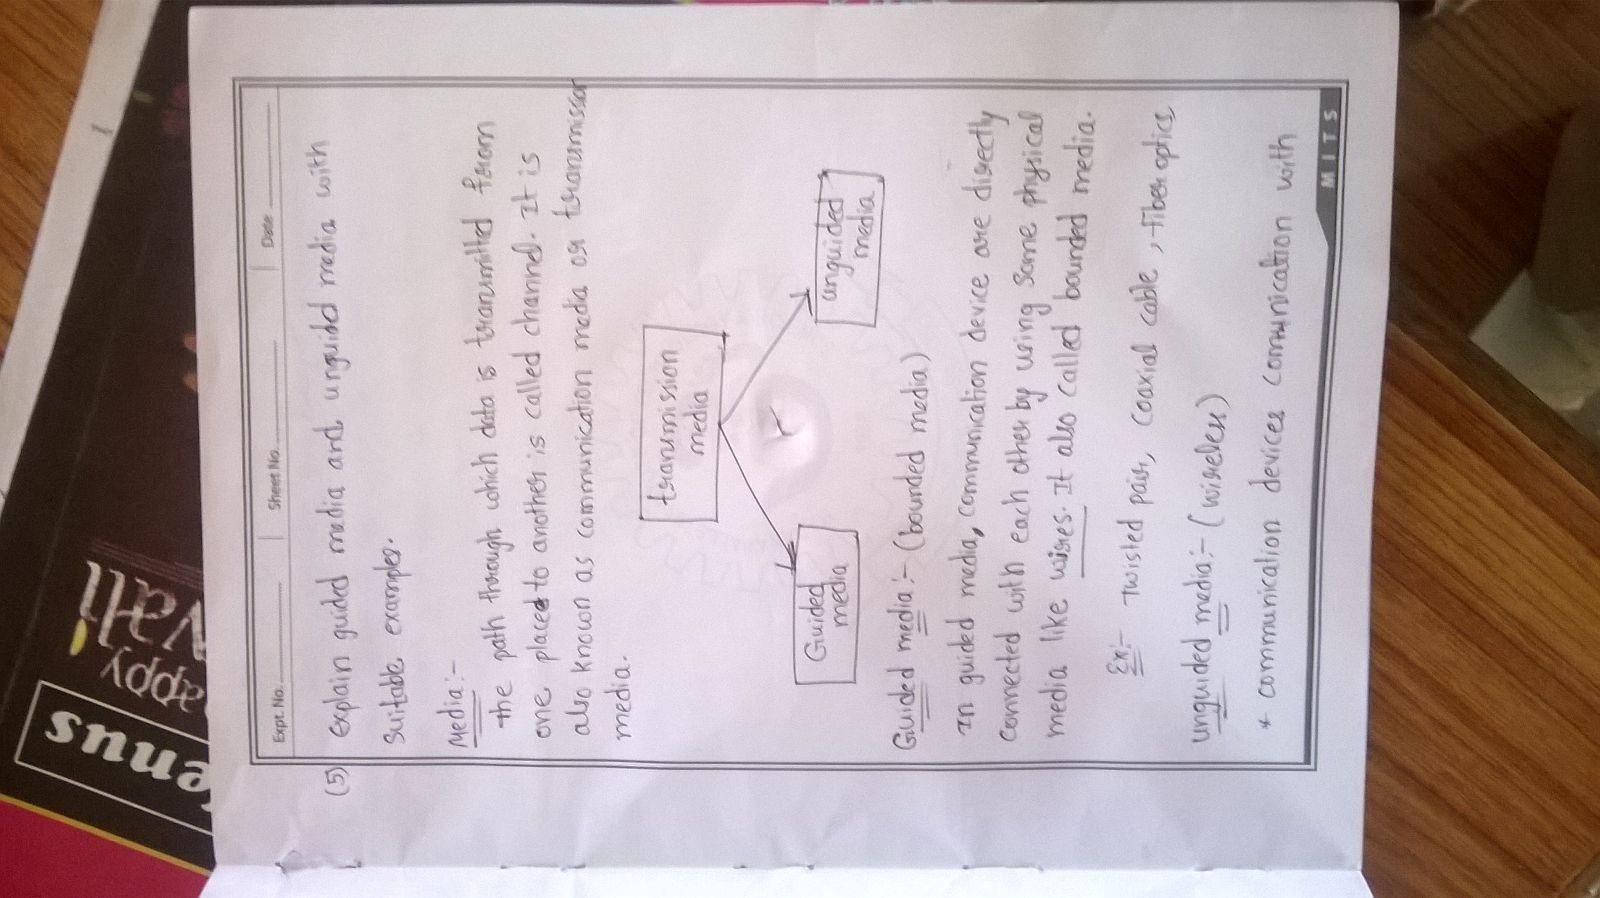 Venus
Happy
wali
Expt. No.
Sheet No.
Date
(5) Explain guided media and unguidd media with
suitable examples.
Media:-
The path through which data is transmitted from
one placed to another is called channel. It is
also known as communication media or transmissor
media.
transmission
media
Guided
media
unguided
media
Guided media:- (bounded media)
In guided media, communication device are directly
connected with each other by using some physical
media like wires. It also called bounded media.
Ex:- Twisted pair, coaxial cable, Fiber optics,
unguided media:- (wireless)
* communication devices comunication with
MITS